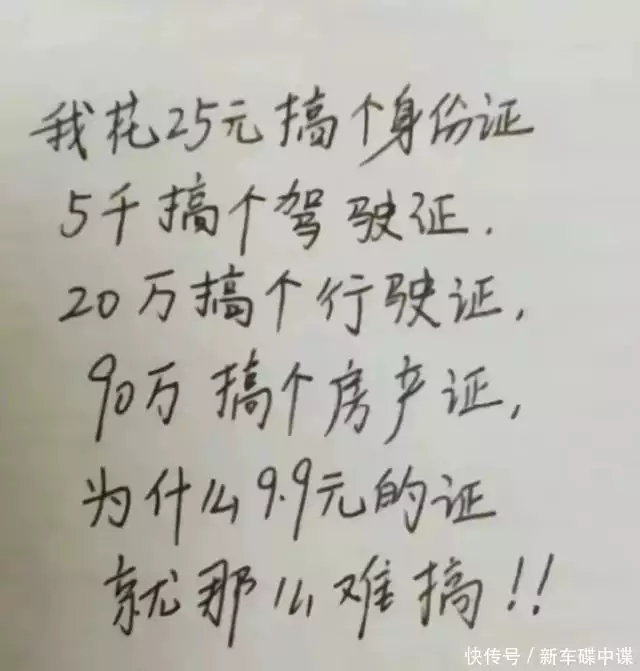 我花25元搞个身份证
5千搞个驾驶证.
20万搞个行驶证,
90万搞个房产证,
为什么9.9元的证
就那么难搞!!
快传号/新车碟中谍